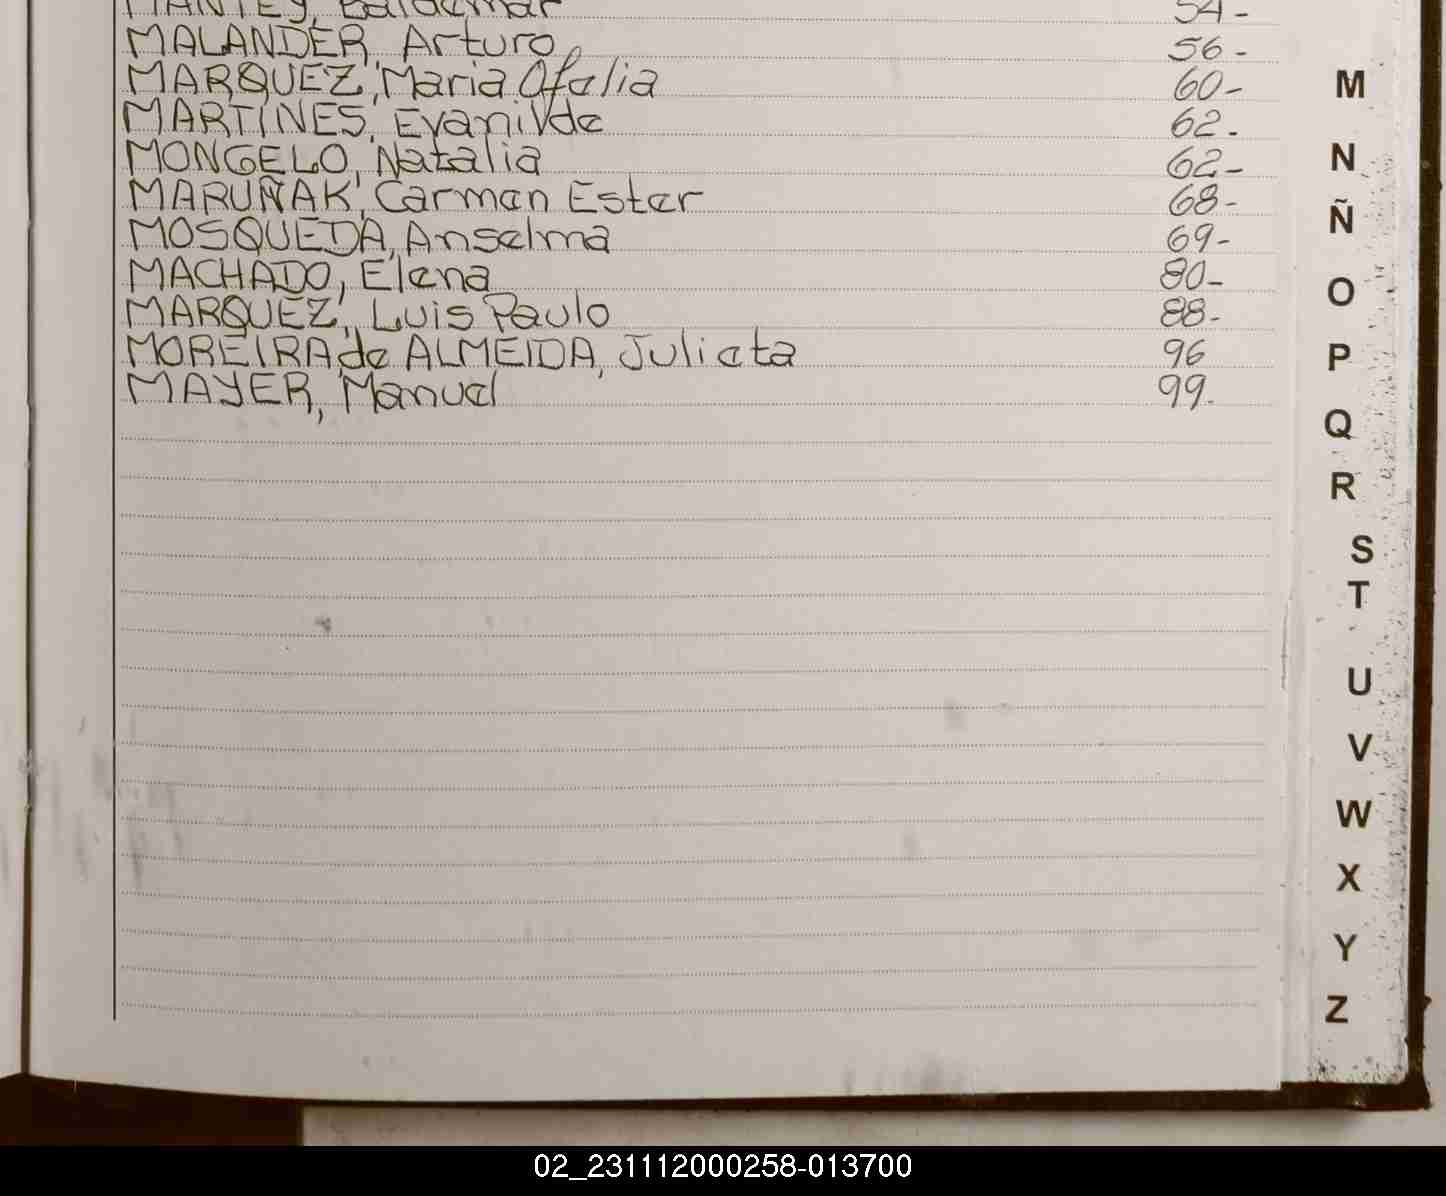 MANTEY, Baldemar 54-
MALANDER, Arturo 56-
MARQUEZ, Maria Ofelia 60-
MARTINES, Evanilde 62-
MONGELO, Natalia 62-
MARUÑAK, Carmen Ester 68-
MOSQUEDA, Anselma 69-
MACHADO, Elena 80-
MARQUEZ, Luis Paulo 88-
MOREIRA de ALMEIDA, Julieta 96
MAYER, Manuel 99.
M
N
Ñ
O
P
Q
R
S
T
U
V
W
X
Y
Z
02_231112000258-013700